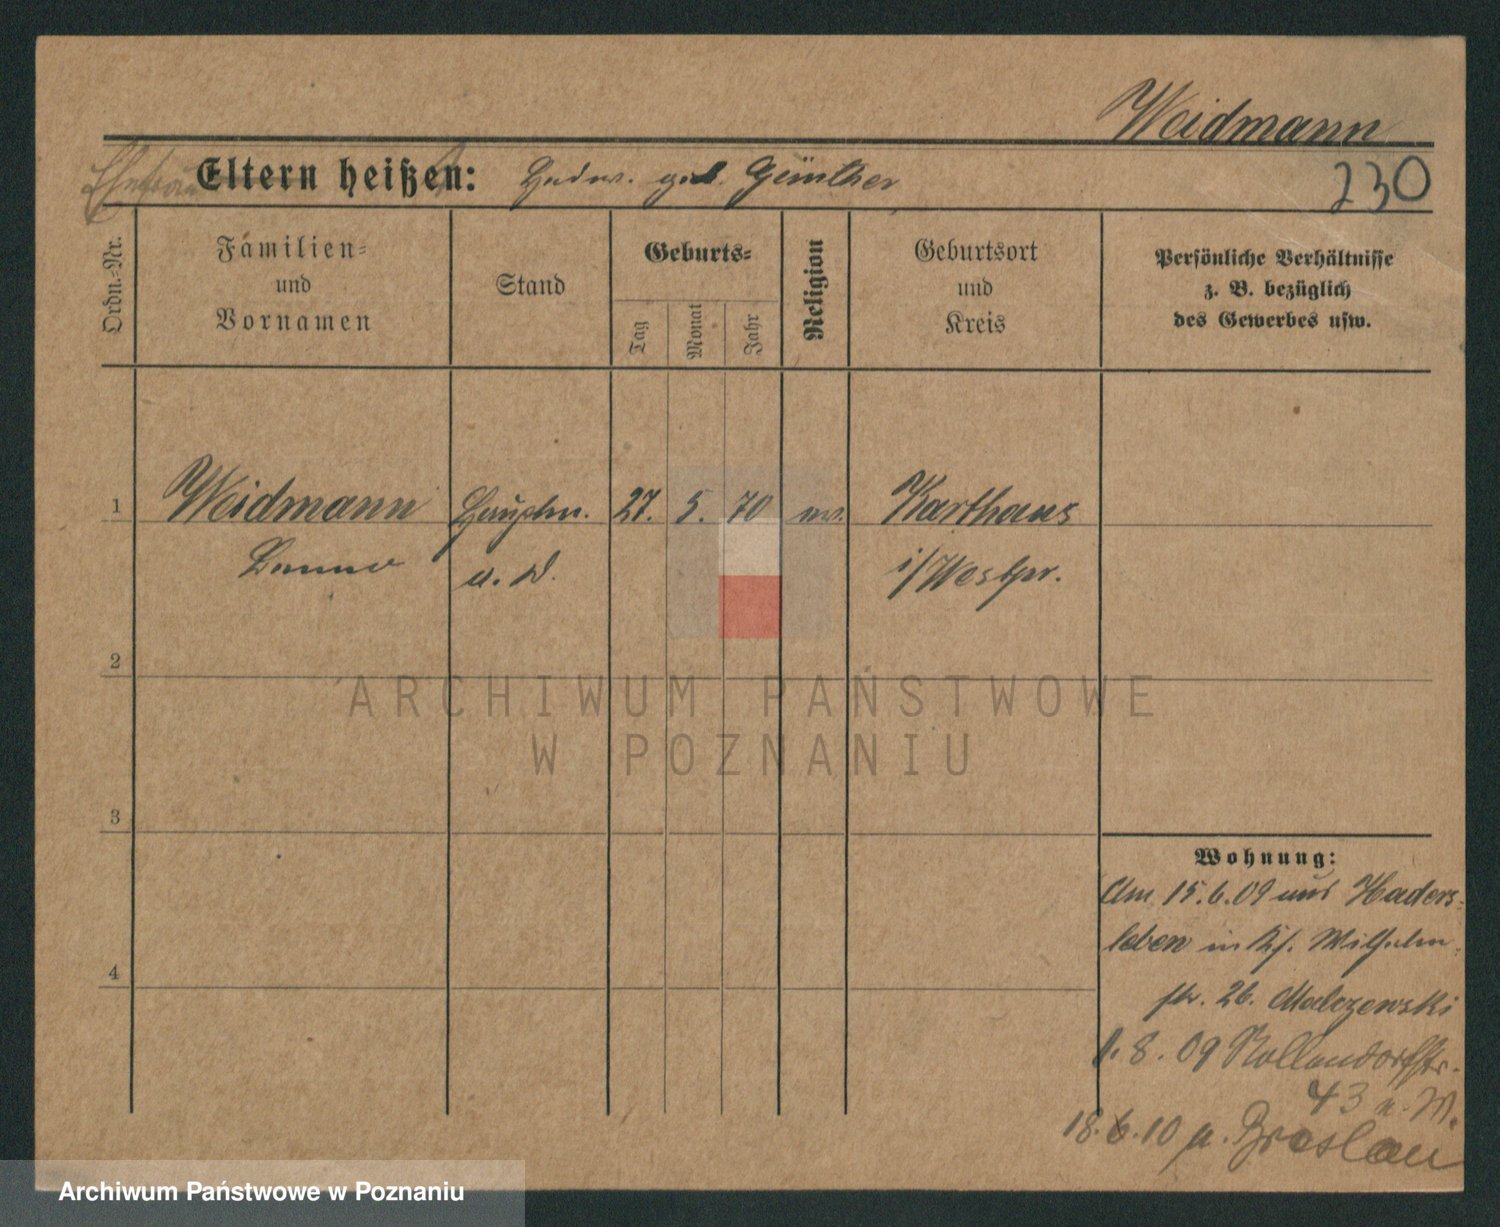 Weidmann
230
Ehefrau
Eltern heißen: Hedw. geb. Günther
Ordn.-Nr.
Familien-
und
Vornamen
Stand
Geburts-
Tag
Monat
Jahr
Religion
Geburtsort
und
Kreis
Persönliche Verhältnisse
z. B. bezüglich
des Gewerbes usw.
1 Weidmann Hauptm. 27. 5. 70 Karthaus
a. D. i/Westpr.
2
ARCHIWUM PAŃSTWOWE
W POZNANIU
3
4
Wohnung:
Am 15.6.09 aus Haders-
leben in Wilhelm-
str. 26. Malczewski
1. 8. 09 Nollendorfstr.
43 n. W.
18.6.10 n. Breslau
Archiwum Państwowe w Poznaniu